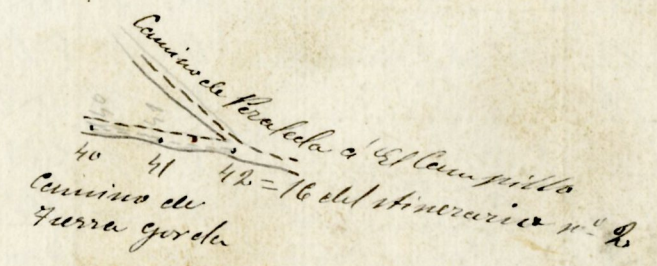 Camino de Peraleda á El Campillo
40 41
40 41 42 = 16 del itinerario nº 2
Camino de
Tierra gorda